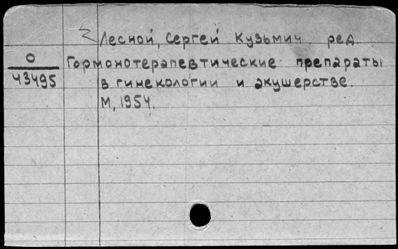 Лесной, Сергей Кузьмич ред.
О
43495
Гормонотерапевтические препараты
в гинекологии и акушерстве.
М, 1954.